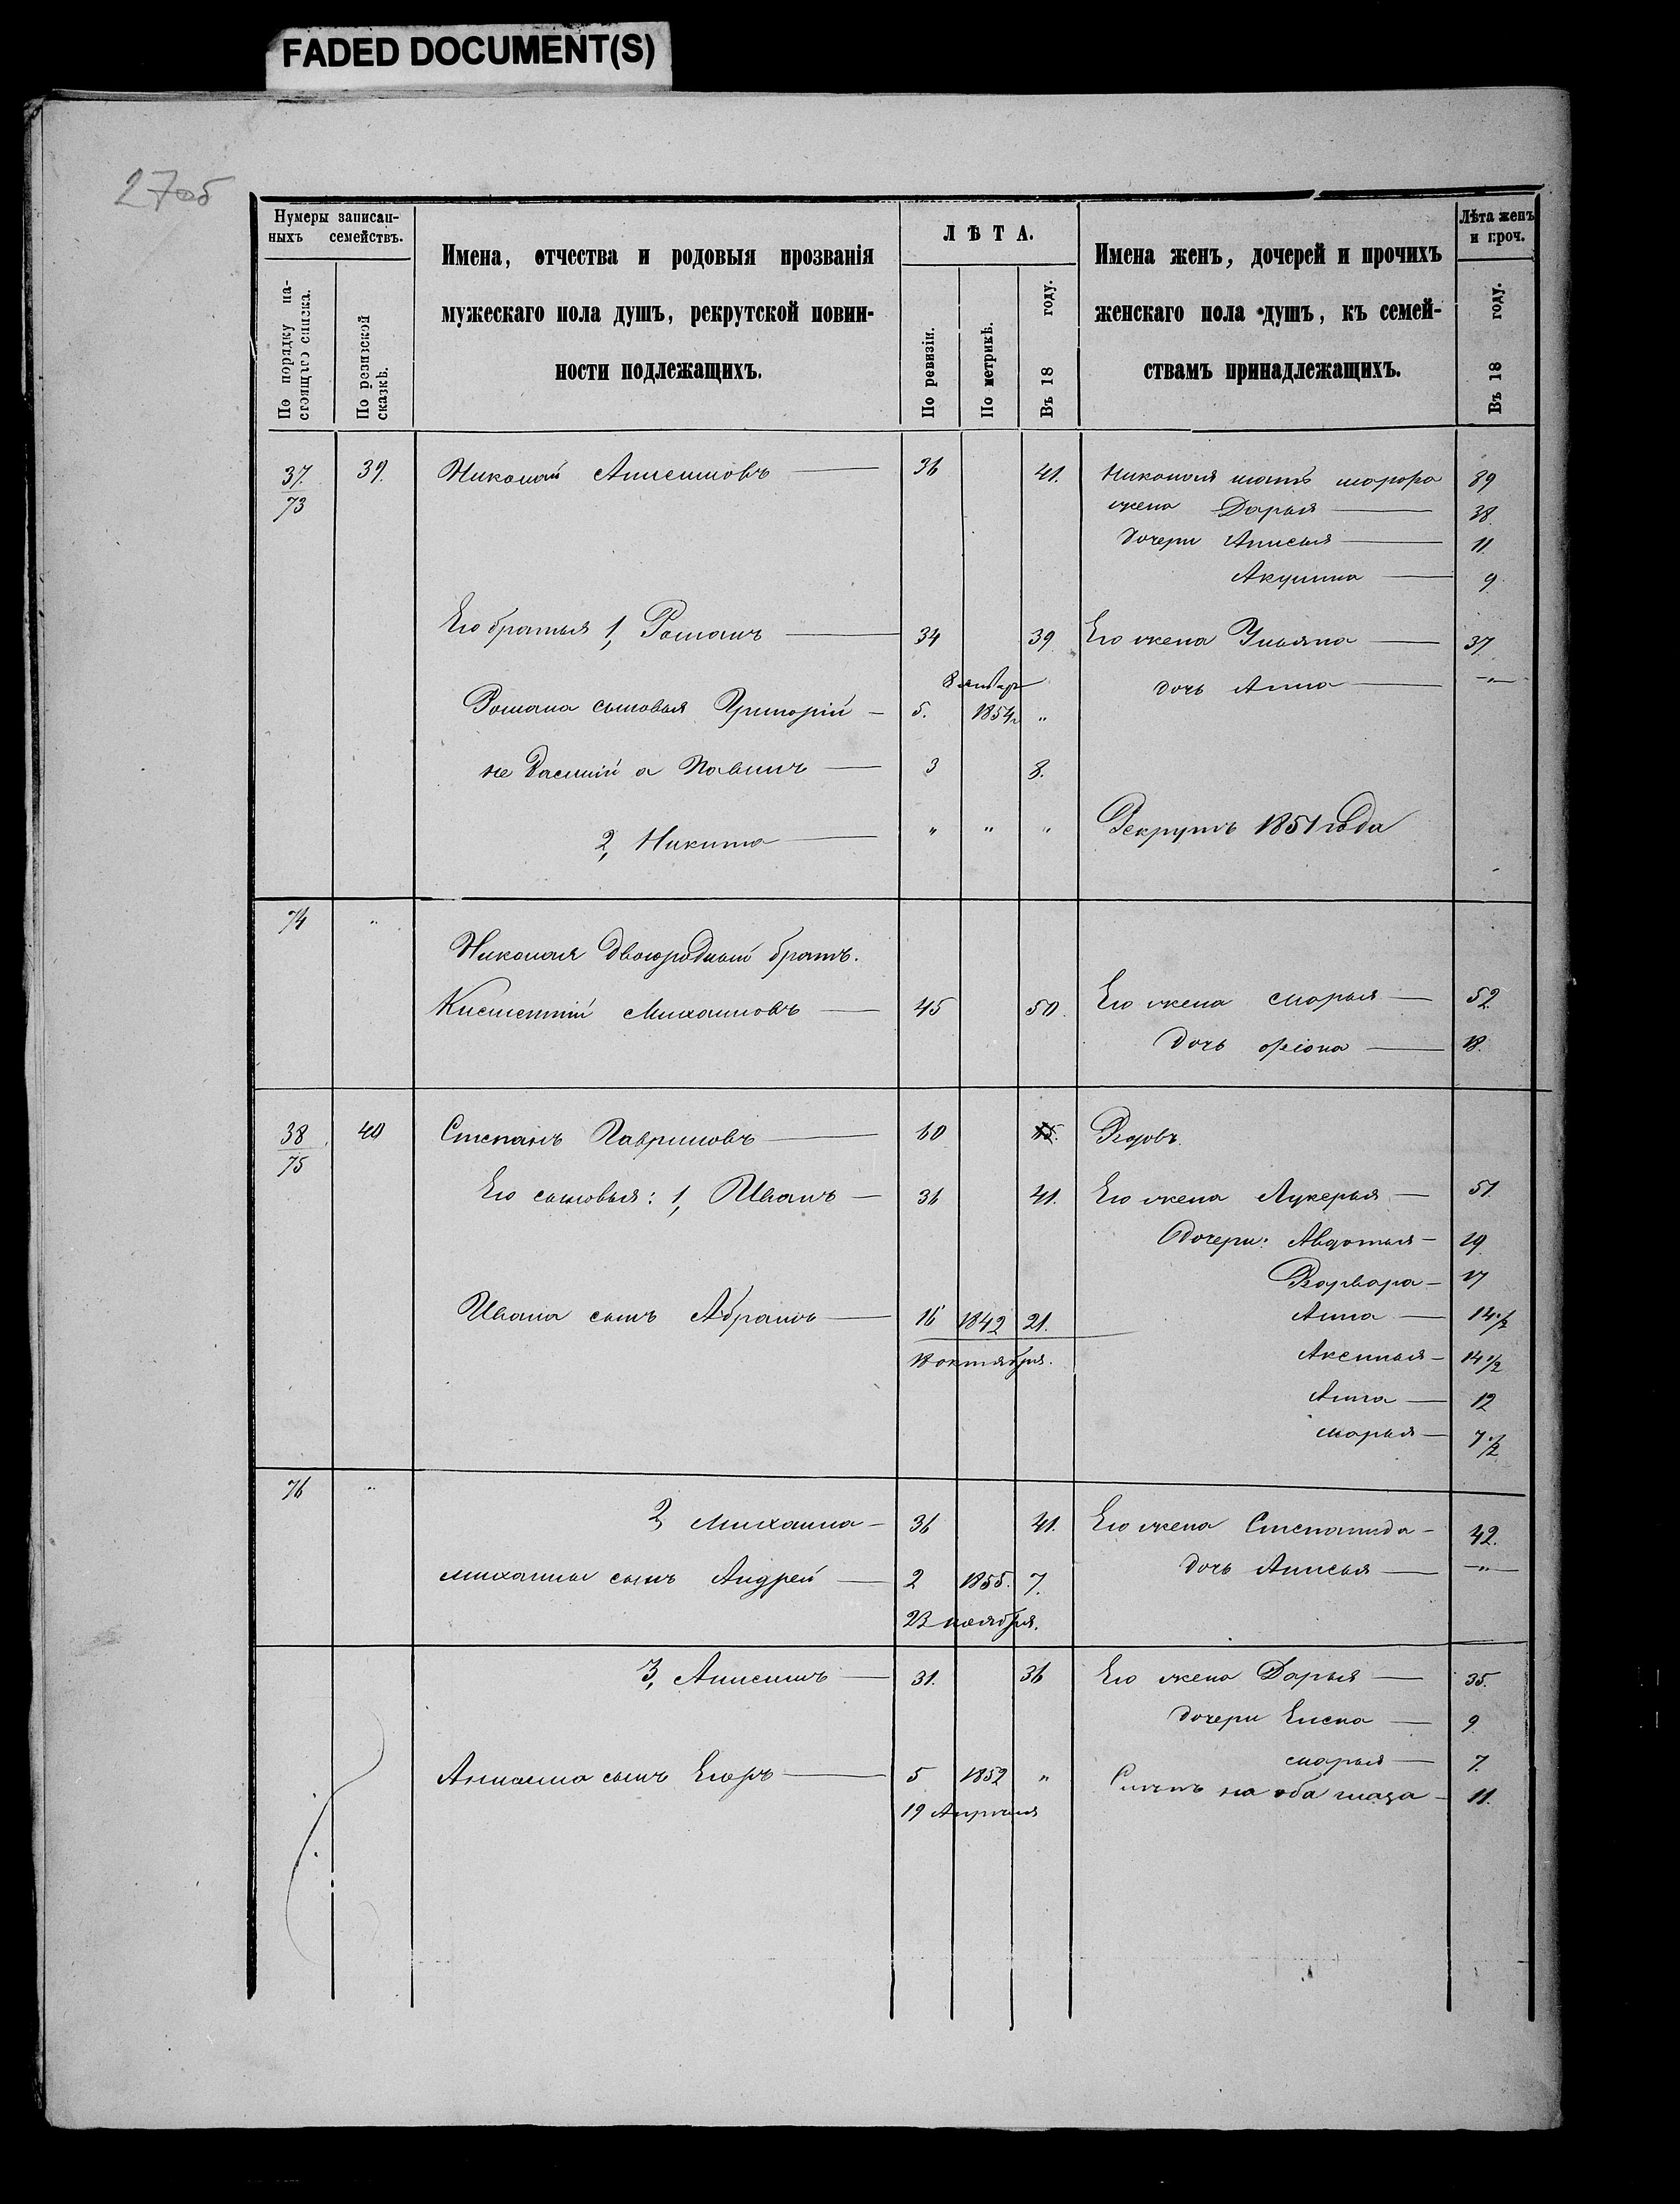 FADED DOCUMENT(S)
27об
Нумеры записан-
ныхъ семействъ.
По порядку на-
стоящаго списка.
По ревизской
сказкѣ.
Имена, отчества и родовыя прозванія
мужескаго пола душъ, рекрутской повин-
ности подлежащихъ.
ЛѢТА.
По ревизіи.
По метрикѣ.
Въ 18 году.
Имена женъ, дочерей и прочихъ
женскаго пола душъ, къ семей-
ствамъ принадлежащихъ.
Лѣта женъ
и проч.
Въ 18 году.
37/73 39. Николай Анисимовъ — 36 41. Николая мать 89
жена Дарья — 38
дочери Анисья — 11.
Акулина — 9
Его братья 1, Романъ — 34 39 Его жена Ульяна — 37
8 январ дочь Анна — "
Романа сыновья Григорій — 5. 1854 "
не а — 3 8.
2, Никита — " " " Рекрутъ 1851 года
74 "
Николая двоюродный братъ.
Михайловъ — 45 50. Его жена Марья — 52
дочь — 18.
38/75 40 Степанъ Гавриловъ — 60 65. Вдовъ.
Его сыновья: 1, Иванъ — 36 41. Его жена Лукерья — 51
дочери: Авдотья — 19
Варвара — 17
Ивана сынъ Абрамъ — 16 1842 21. Анна — 14 1/2
18 октября. Аксинья — 14 1/2
Анна — 12
Марья — 7 1/2
76 "
2, Михаила — 36 41. Его жена Степанида — 42.
Михаилы сынъ Андрей — 2 1855. 7. дочь Анисья — "
23 ноября.
3, Анисимъ — 31. 36 Его жена Дарья — 35.
дочери Елена — 9
Марья — 7.
сынъ Егоръ — 5 1852 " Слѣпъ на оба глаза — 11.
19 Апрѣля